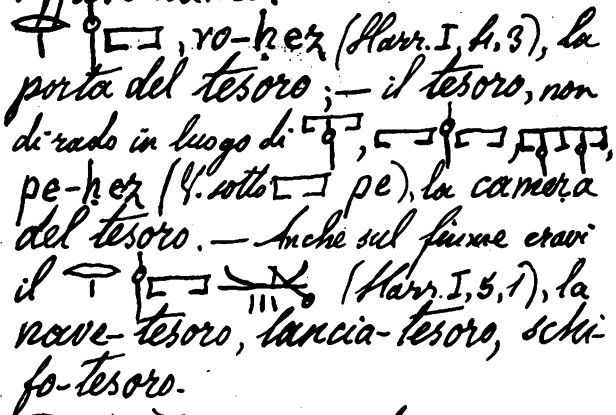 𓂋𓌉𓉐, ro-ḥez (Harr. I, 4, 3), la
porta del tesoro; — il tesoro, non
di rado in luogo di
pe-ḥez (V. sotto 𓉐 pe), la camera
del tesoro. — Anche sul fiume eravi
il (Harr. I, 5, 1), la
nave-tesoro, lancia-tesoro, schi-
fo-tesoro.